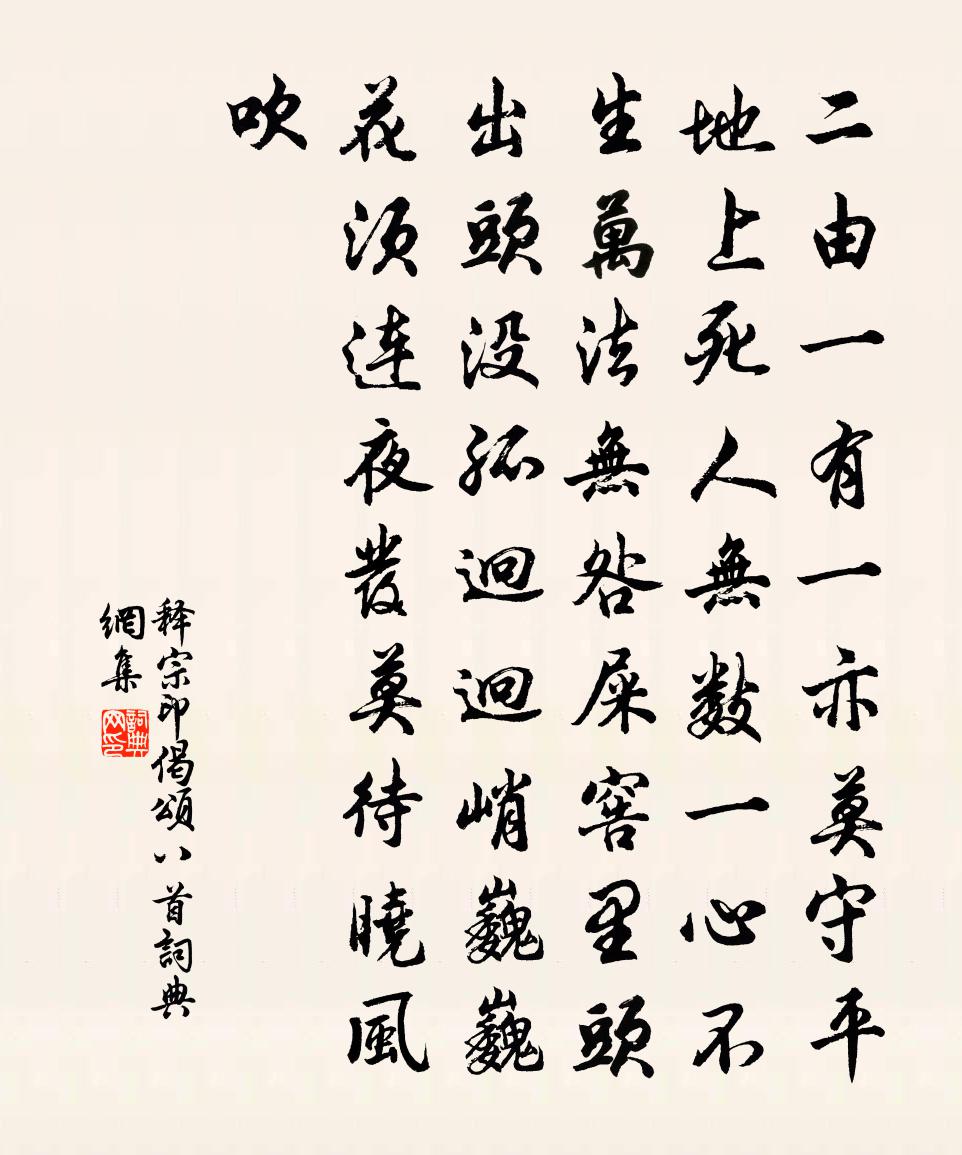 二由一有一亦莫守平
地上死人無數一心不
生萬法無咎屎窖里頭
出頭没孤迥迥峭巍巍
花須連夜發莫待曉風
吹
释宗印偈頌八首詞典
網集
詞典
网印